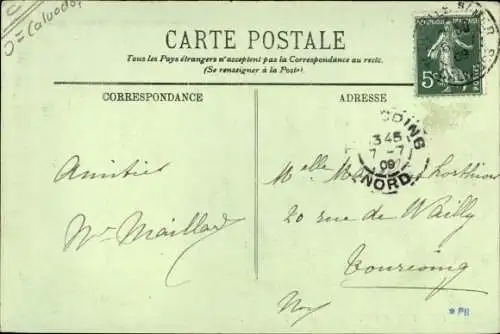 D=Calvados
CARTE POSTALE
Tous les Pays étrangers n'acceptent pas la Correspondance au recto.
(Se renseigner à la Poste)
CORRESPONDANCE
ADRESSE
REPUBLIQUE FRANÇAISE
5c
COING
3 45
7 - 7
09
NORD
Amitiés
Maillard
Melle
Lhorthiois
20 rue de Wailly
Tourcoing
Nord